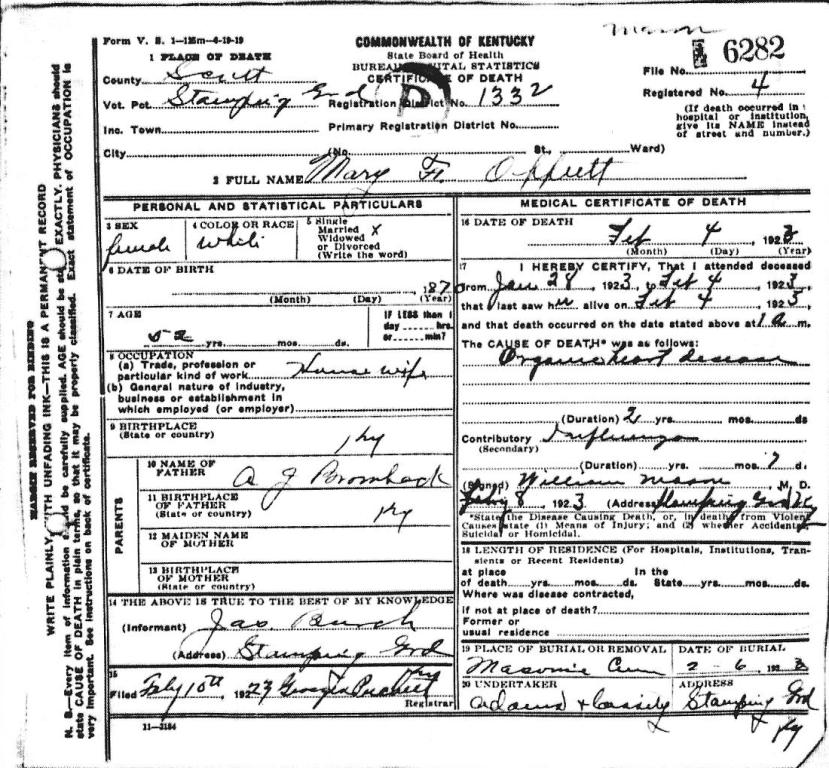 Mason
Form V. S. 1—1
COMMONWEALTH OF KENTUCKY
State Board of Health
BUREAU VITAL STATISTICS
CERTIFICATE OF DEATH
File No. 6282
Registered No. 4
(If death occurred in
hospital or institution,
give its NAME instead
of street and number.)
1 PLACE OF DEATH
County Scott
Vot. Pct. Stamping Grd Registration District No. 1332
Inc. Town Primary Registration District No.
City (No. St., Ward)
2 FULL NAME Mary
PERSONAL AND STATISTICAL PARTICULARS
3 SEX female
4 COLOR OR RACE White
5 Single
Married X
Widowed
or Divorced
(Write the word)
6 DATE OF BIRTH
187
(Month) (Day) (Year)
7 AGE
52 yrs. mos. ds.
IF LESS than 1
day hrs.
or min?
8 OCCUPATION
(a) Trade, profession or
particular kind of work House wife
(b) General nature of industry,
business or establishment in
which employed (or employer)
9 BIRTHPLACE
(State or country)
Ky
PARENTS
10 NAME OF
FATHER A J
11 BIRTHPLACE
OF FATHER
(State or country) Ky
12 MAIDEN NAME
OF MOTHER
13 BIRTHPLACE
OF MOTHER
(State or country)
14 THE ABOVE IS TRUE TO THE BEST OF MY KNOWLEDGE
(Informant) Jas.
(Address) Stamping Grd
Ky
15
Filed Feby 10th, 1923 Georgia
Registrar
11—3184
MEDICAL CERTIFICATE OF DEATH
16 DATE OF DEATH
Feb 4, 1923
(Month) (Day) (Year)
17 I HEREBY CERTIFY, That I attended deceased
from Jan 28, 1923, to Feb 4, 1923,
that I last saw her alive on Feb 4, 1923,
and that death occurred on the date stated above at 1 a m.
The CAUSE OF DEATH* was as follows:
Organic heart disease
(Duration) 2 yrs. mos. ds
Contributory Influenza
(Secondary)
(Duration) yrs. mos. 7 d.
(Signed) William Mason, M. D.
Feby 8, 1923 (Address) Stamping Grd Ky
*State the Disease Causing Death, or, in deaths from Violent
Causes state (1) Means of Injury; and (2) whether Accidental,
Suicidal or Homicidal.
18 LENGTH OF RESIDENCE (For Hospitals, Institutions, Tran-
sients or Recent Residents)
at place In the
of death yrs. mos. ds. State yrs. mos. ds.
Where was disease contracted,
if not at place of death?
Former or
usual residence
19 PLACE OF BURIAL OR REMOVAL
Masonic Cem
DATE OF BURIAL
2-6, 1923
20 UNDERTAKER
Adams + Cassity
ADDRESS
Stamping Grd
Ky
MARGIN RESERVED FOR BINDING
WRITE PLAINLY, WITH UNFADING INK—THIS IS A PERMANENT RECORD
N. B.—Every item of information should be carefully supplied. AGE should be stated EXACTLY. PHYSICIANS should
state CAUSE OF DEATH in plain terms, so that it may be properly classified. Exact statement of OCCUPATION is
very important. See instructions on back of certificate.